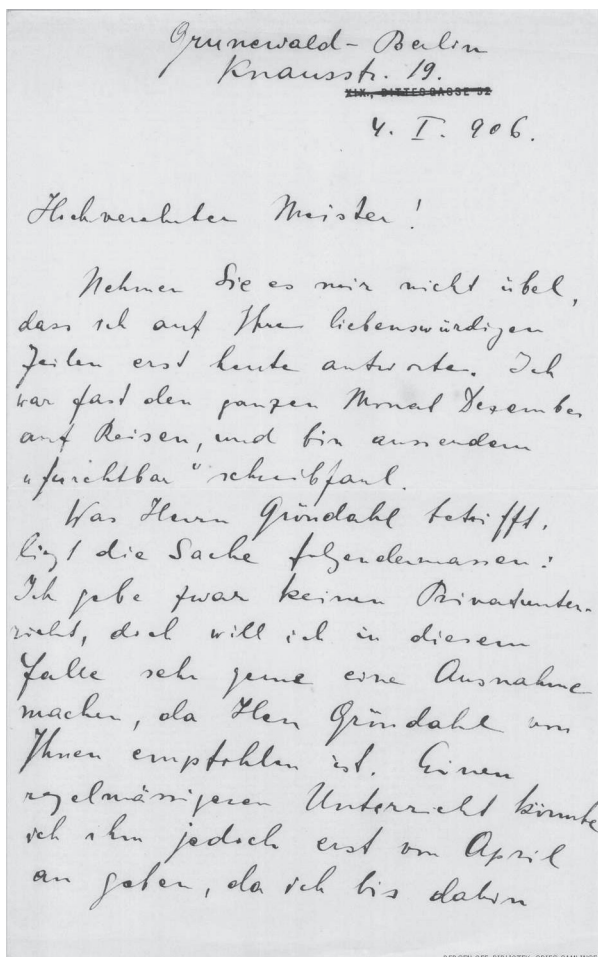 Grunewald-Berlin
Knausstr. 19.
XIX., DITTESGASSE 52
4. I. 906.
Hochverehrter Meister!
Nehmen Sie es mir nicht übel,
dass ich auf Ihre liebenswürdigen
Zeilen erst heute antworte. Ich
war fast den ganzen Monat Dezember
auf Reisen, und bin ausserdem
„furchtbar" schreibfaul.
Was Herrn Gröndahl betrifft,
liegt die Sache folgendermassen:
Ich gebe zwar keinen Privatunter-
richt, doch will ich in diesem
Falle sehr gerne eine Ausnahme
machen, da Herr Gröndahl von
Ihnen empfohlen ist. Einen
regelmässigeren Unterricht könnte
ich ihm jedoch erst von April
an geben, da ich bis dahin